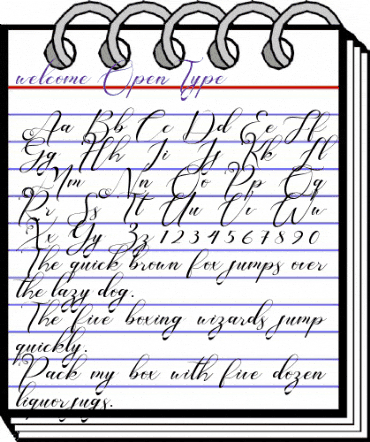 welcome Open Type
Aa Bb Cc Dd Ee Ff
Gg Hh Ii Jj Kk Ll
Mm Nn Oo Pp Qq
Rr Ss Tt Uu Vv Ww
Xx Yy Zz 1 2 3 4 5 6 7 8 9 0
The quick brown fox jumps over
the lazy dog.
The five boxing wizards jump
quickly.
Pack my box with five dozen
liquor jugs.